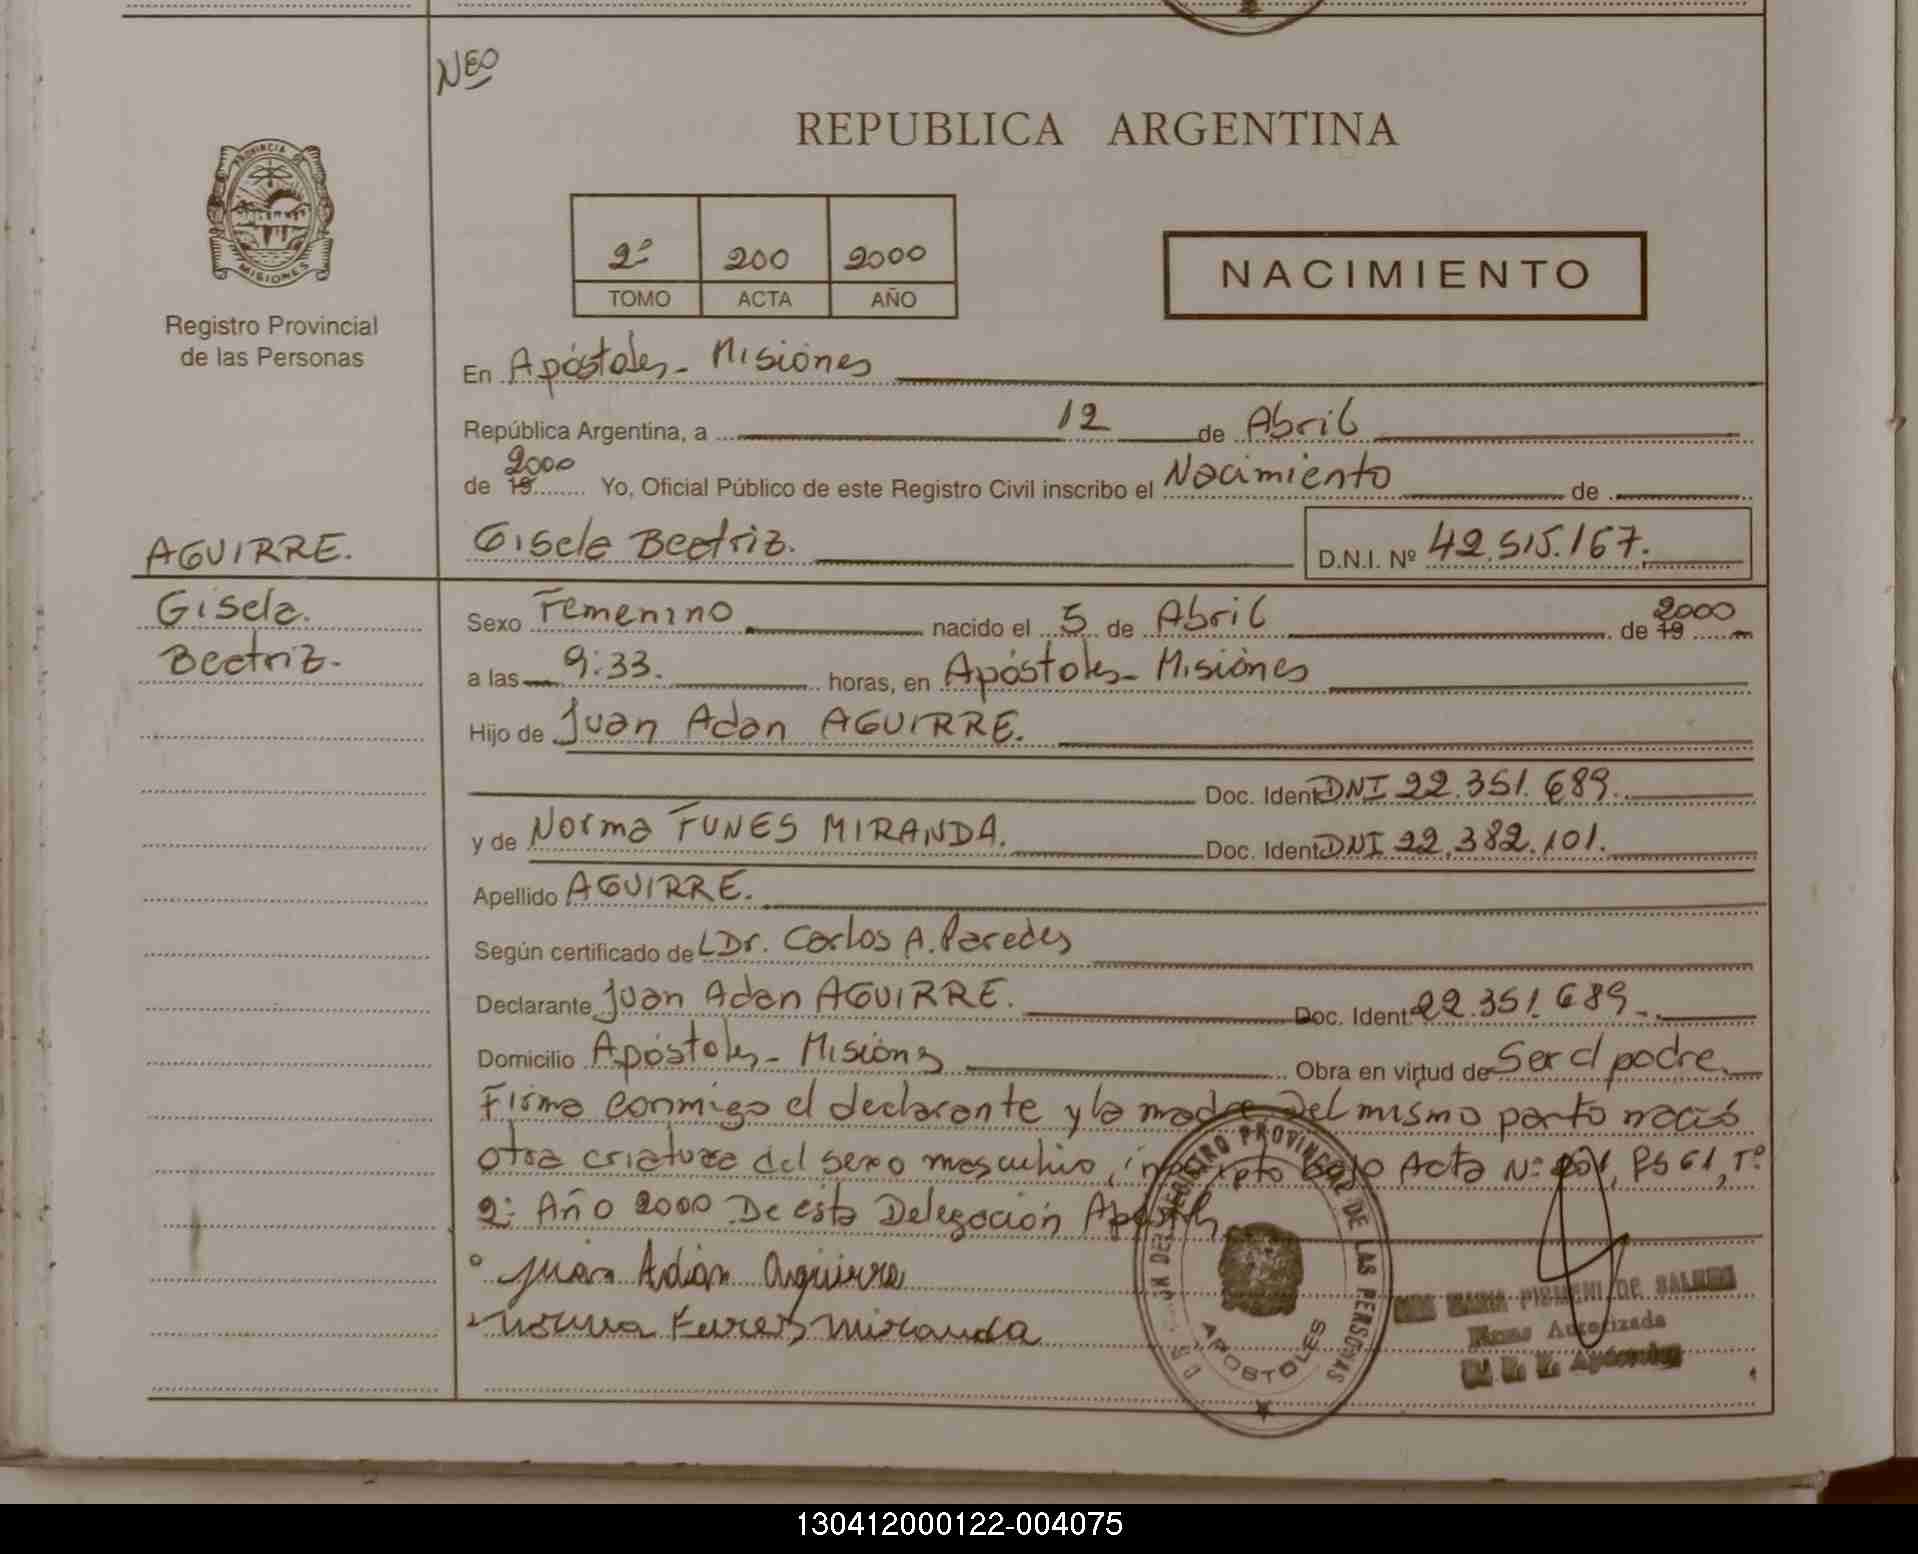 NEO
REPUBLICA ARGENTINA
PROVINCIA DE
MISIONES
Registro Provincial
de las Personas
2º 200 2000
TOMO ACTA AÑO
NACIMIENTO
En Apóstoles - Misiones
República Argentina, a 12 de Abril
2000
de 19 Yo, Oficial Público de este Registro Civil inscribo el Nacimiento de
AGUIRRE. Gisela Beatriz. D.N.I. Nº 42.515.167.
Gisela. Sexo Femenino nacido el 5 de Abril de 19 2000
Beatriz. a las 9:33. horas, en Apóstoles - Misiones
Hijo de Juan Adan AGUIRRE.
Doc. Ident. DNI 22.351.689.
y de Norma FUNES MIRANDA. Doc. Ident. DNI 22.382.101.
Apellido AGUIRRE.
Según certificado de L Dr. Carlos A. Paredes
Declarante Juan Adan AGUIRRE. Doc. Ident. 22.351.689.
Domicilio Apóstoles - Misiones Obra en virtud de Ser el padre.
Firma conmigo el declarante y la madre. Del mismo parto nació
otra criatura del sexo masculino, inscripto bajo Acta Nº 201, Pg 61, Tº
2º Año 2000 De esta Delegación Apóstoles
Juan Adán Aguirre
Norma Funes Miranda
REGISTRO PROVINCIAL DE LAS PERSONAS
APOSTOLES
MARIA DE
Firma Autorizada
Apóstoles
130412000122-004075